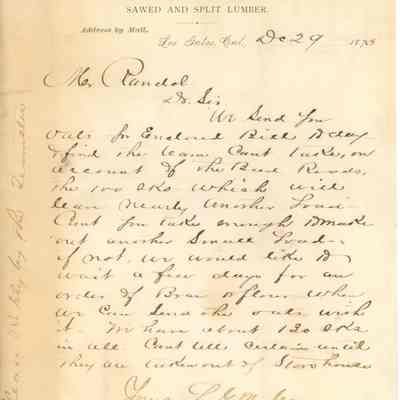 SAWED AND SPLIT LUMBER.
Address by Mail,
Los Gatos, Cal. Dec 29 1878
Mr Randol
Dr. Sir
We Send you
oats for Enclosed Bill today
& find the team Cant take, on
account of the Bad Roads,
the 100 sks which will
leav Nearly Another Load
Cant you take enough to make
out another Small Load.
if not, we would like to
wait a few days for an
order of Bran or flour When
we can Send the oats with
it. We have about 130 sks
in all Cant tell Certain until
they are taken out of Storehouse
Yours
Please Reply by the Teamster